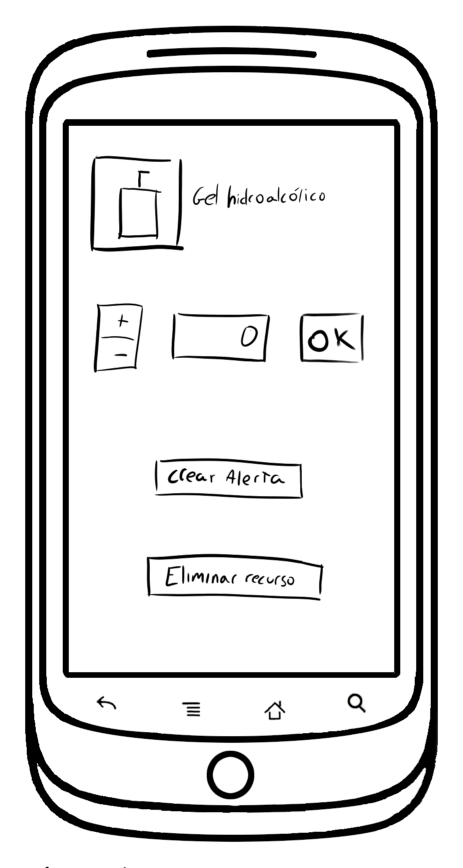 Gel hidroalcólico
+
-
0
OK
Crear Alerta
Eliminar recurso